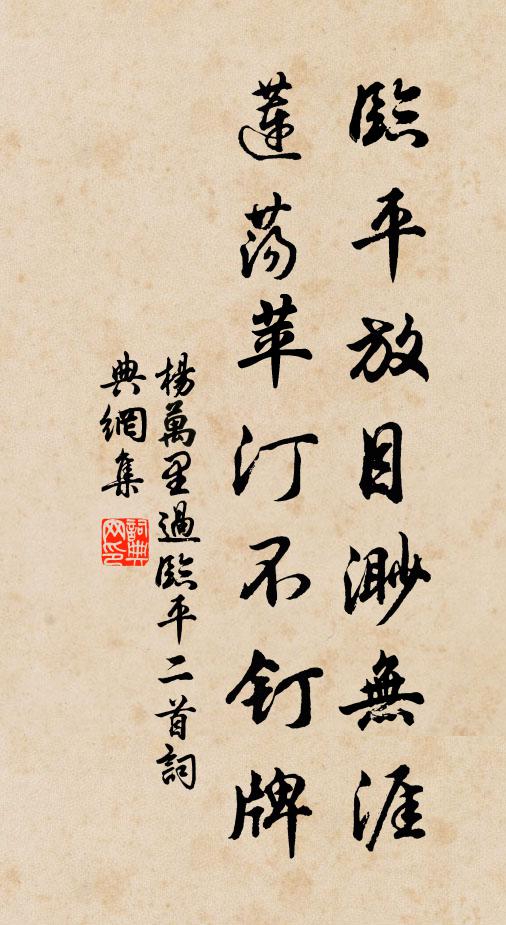 臨平放目渺無涯
蓮蕩苹汀不钉牌
楊萬里過臨平二首詞
典網集
詞典
网印